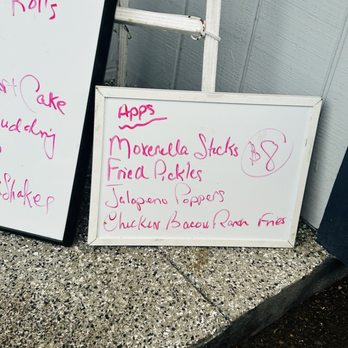 Rolls
Cake
udding
Shakes
Apps
Mozerella Sticks
$8
Fried Pickles
Jalapeno Poppers
Chicken Bacon Ranch Fries